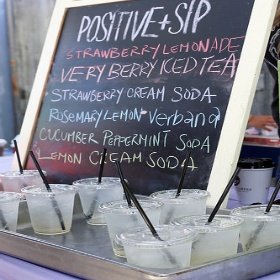 POSITIVE + SIP
STRAWBERRY LEMONADE
VERY BERRY ICED TEA
STRAWBERRY CREAM SODA
ROSEMARY LEMON Verbana
CUCUMBER PEPPERMINT SODA
LEMON CREAM SODA